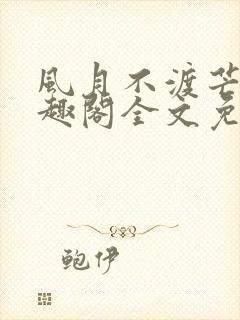 風月不渡芒
趣閣全文免
鮑伊